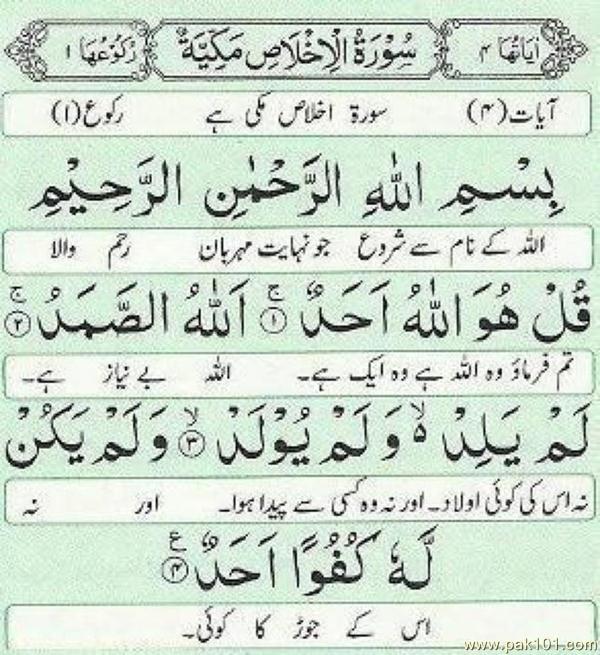 اٰيَاتُهَا ۴ سُوْرَةُ الْاِخْلَاصِ مَكِّيَّةٌ رُكُوْعُهَا ۱
آیات(۴) سورۃ اخلاص مکی ہے رکوع(۱)
بِسْمِ اللّٰهِ الرَّحْمٰنِ الرَّحِيْمِ
اللہ کے نام سے شروع جو نہایت مہربان رحم والا
قُلْ هُوَ اللّٰهُ اَحَدٌ ۚ‏﴿۱﴾ اَللّٰهُ الصَّمَدُ ۚ‏﴿۲﴾
تم فرماؤ وہ اللہ ہے وہ ایک ہے۔ اللہ بے نیاز ہے۔
لَمْ يَلِدْ ۙ وَلَمْ يُوْلَدْ ۙ‏﴿۳﴾ وَلَمْ يَكُنْ
نہ اس کی کوئی اولاد۔ اور نہ وہ کسی سے پیدا ہوا۔ اور نہ
لَّهٗ كُفُوًا اَحَدٌ ﴿۴﴾ ع
اس کے جوڑ کا کوئی۔
www.pak101.com